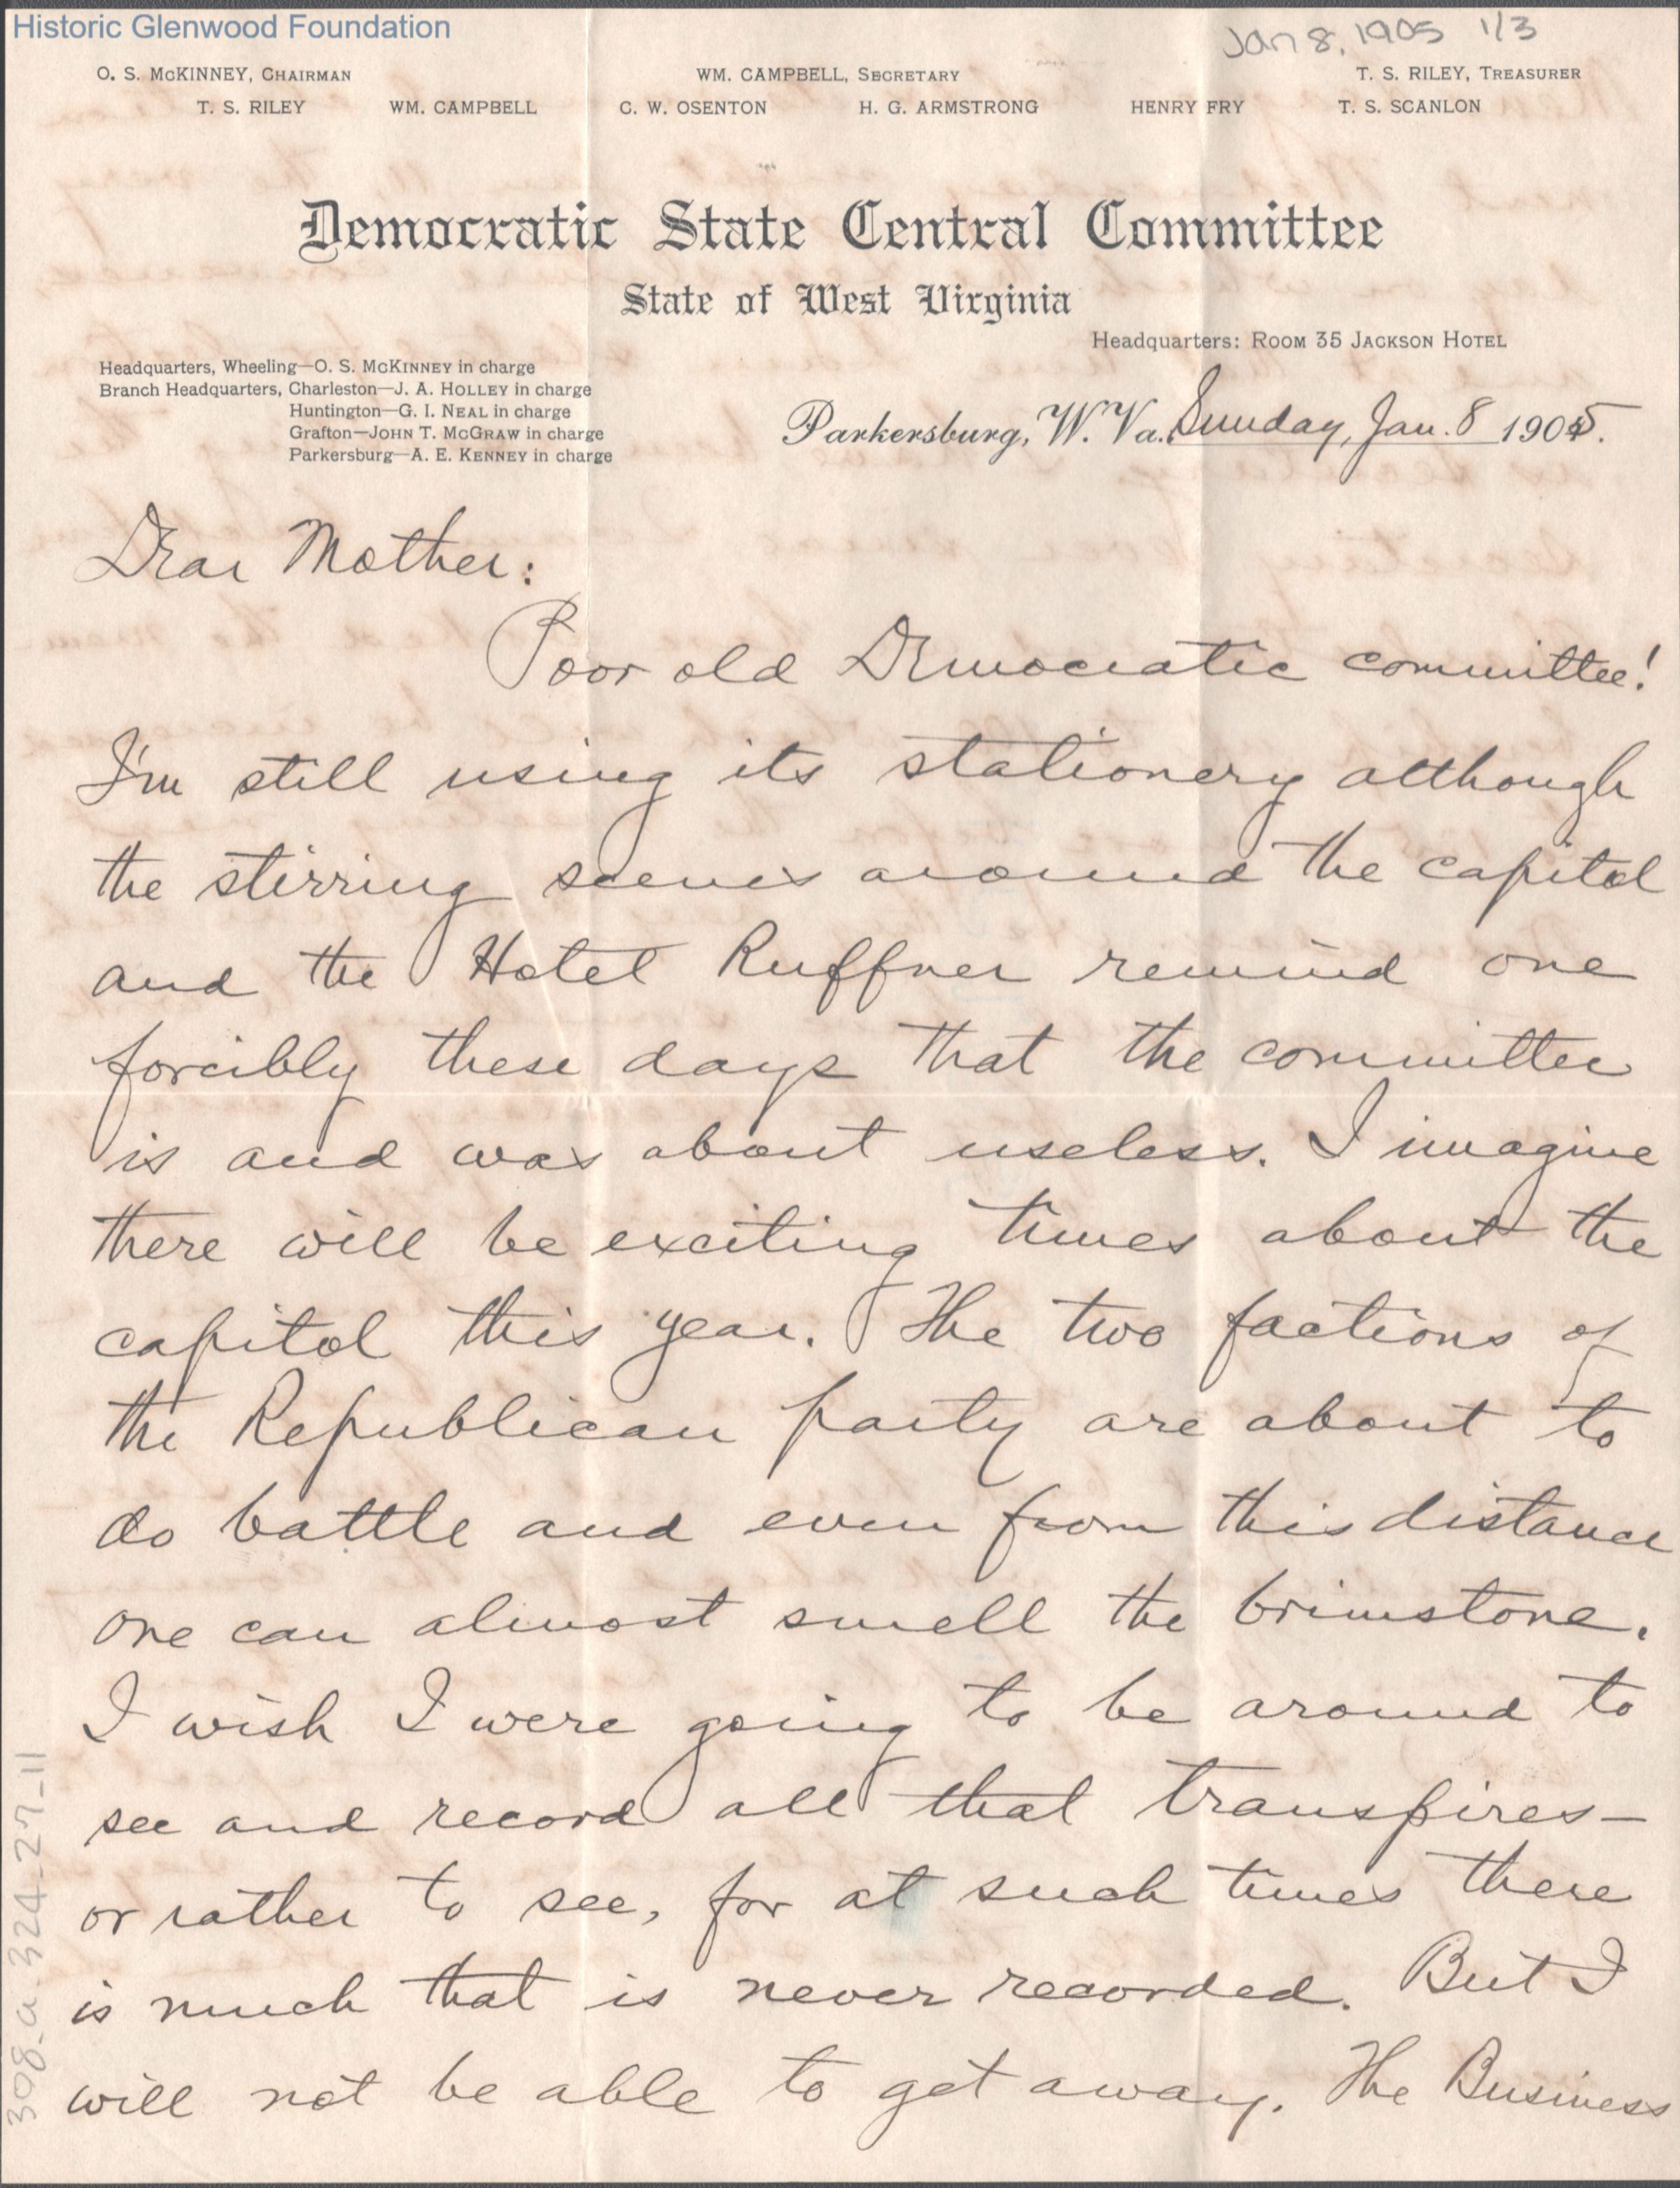 Historic Glenwood Foundation
Jan 8, 1905 1/3
O. S. McKINNEY, CHAIRMAN WM. CAMPBELL, SECRETARY T. S. RILEY, TREASURER
T. S. RILEY WM. CAMPBELL C. W. OSENTON H. G. ARMSTRONG HENRY FRY T. S. SCANLON
Democratic State Central Committee
State of West Virginia
Headquarters: ROOM 35 JACKSON HOTEL
Headquarters, Wheeling—O. S. McKINNEY in charge
Branch Headquarters, Charleston—J. A. HOLLEY in charge
Huntington—G. I. NEAL in charge
Grafton—JOHN T. McGRAW in charge
Parkersburg—A. E. KENNEY in charge
Parkersburg, W. Va., Sunday, Jan. 8 1905.
Dear Mother:
Poor old Democratic committee!
I'm still using its stationery although
the stirring scenes around the capitol
and the Hotel Ruffner remind one
forcibly these days that the committee
is and was about useless. I imagine
there will be exciting times about the
capitol this year. The two factions of
the Republican party are about to
do battle and even from this distance
one can almost smell the brimstone.
I wish I were going to be around to
see and record all that transpires—
or rather to see, for at such times there
is much that is never recorded. But I
will not be able to get away. The Business
308-a.324-27-11